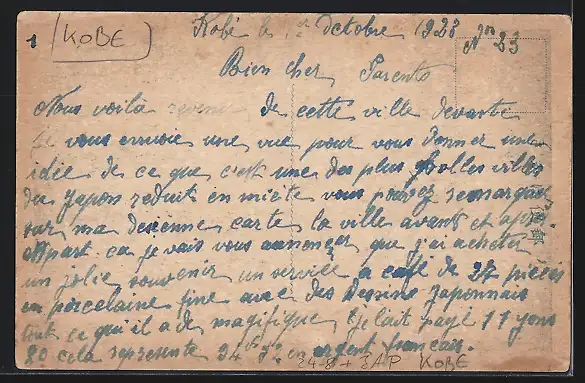 1 KOBE
Kobé le 1er Octobre 1923 No 23
Bien cher Parents
Nous voilà revenu de cette ville devanté
Je vous envoie une vue pour vous donner une
idée de ce que c'est une des plus bolles villes
du Japon réduit en miète vous pouvez remarquer
sur ma deuienne carte la ville avant et après
Appart ca je vais vous annoncer que j'ai acheter
un jolie souvenir un service a café de 24 pièces
en porcelaine fine avec des Dessine Japonnais
tout ce qu'il a de magifique, je lait payé 11 yens
80 cela représente 94 en argent francais.
JAP KOBE